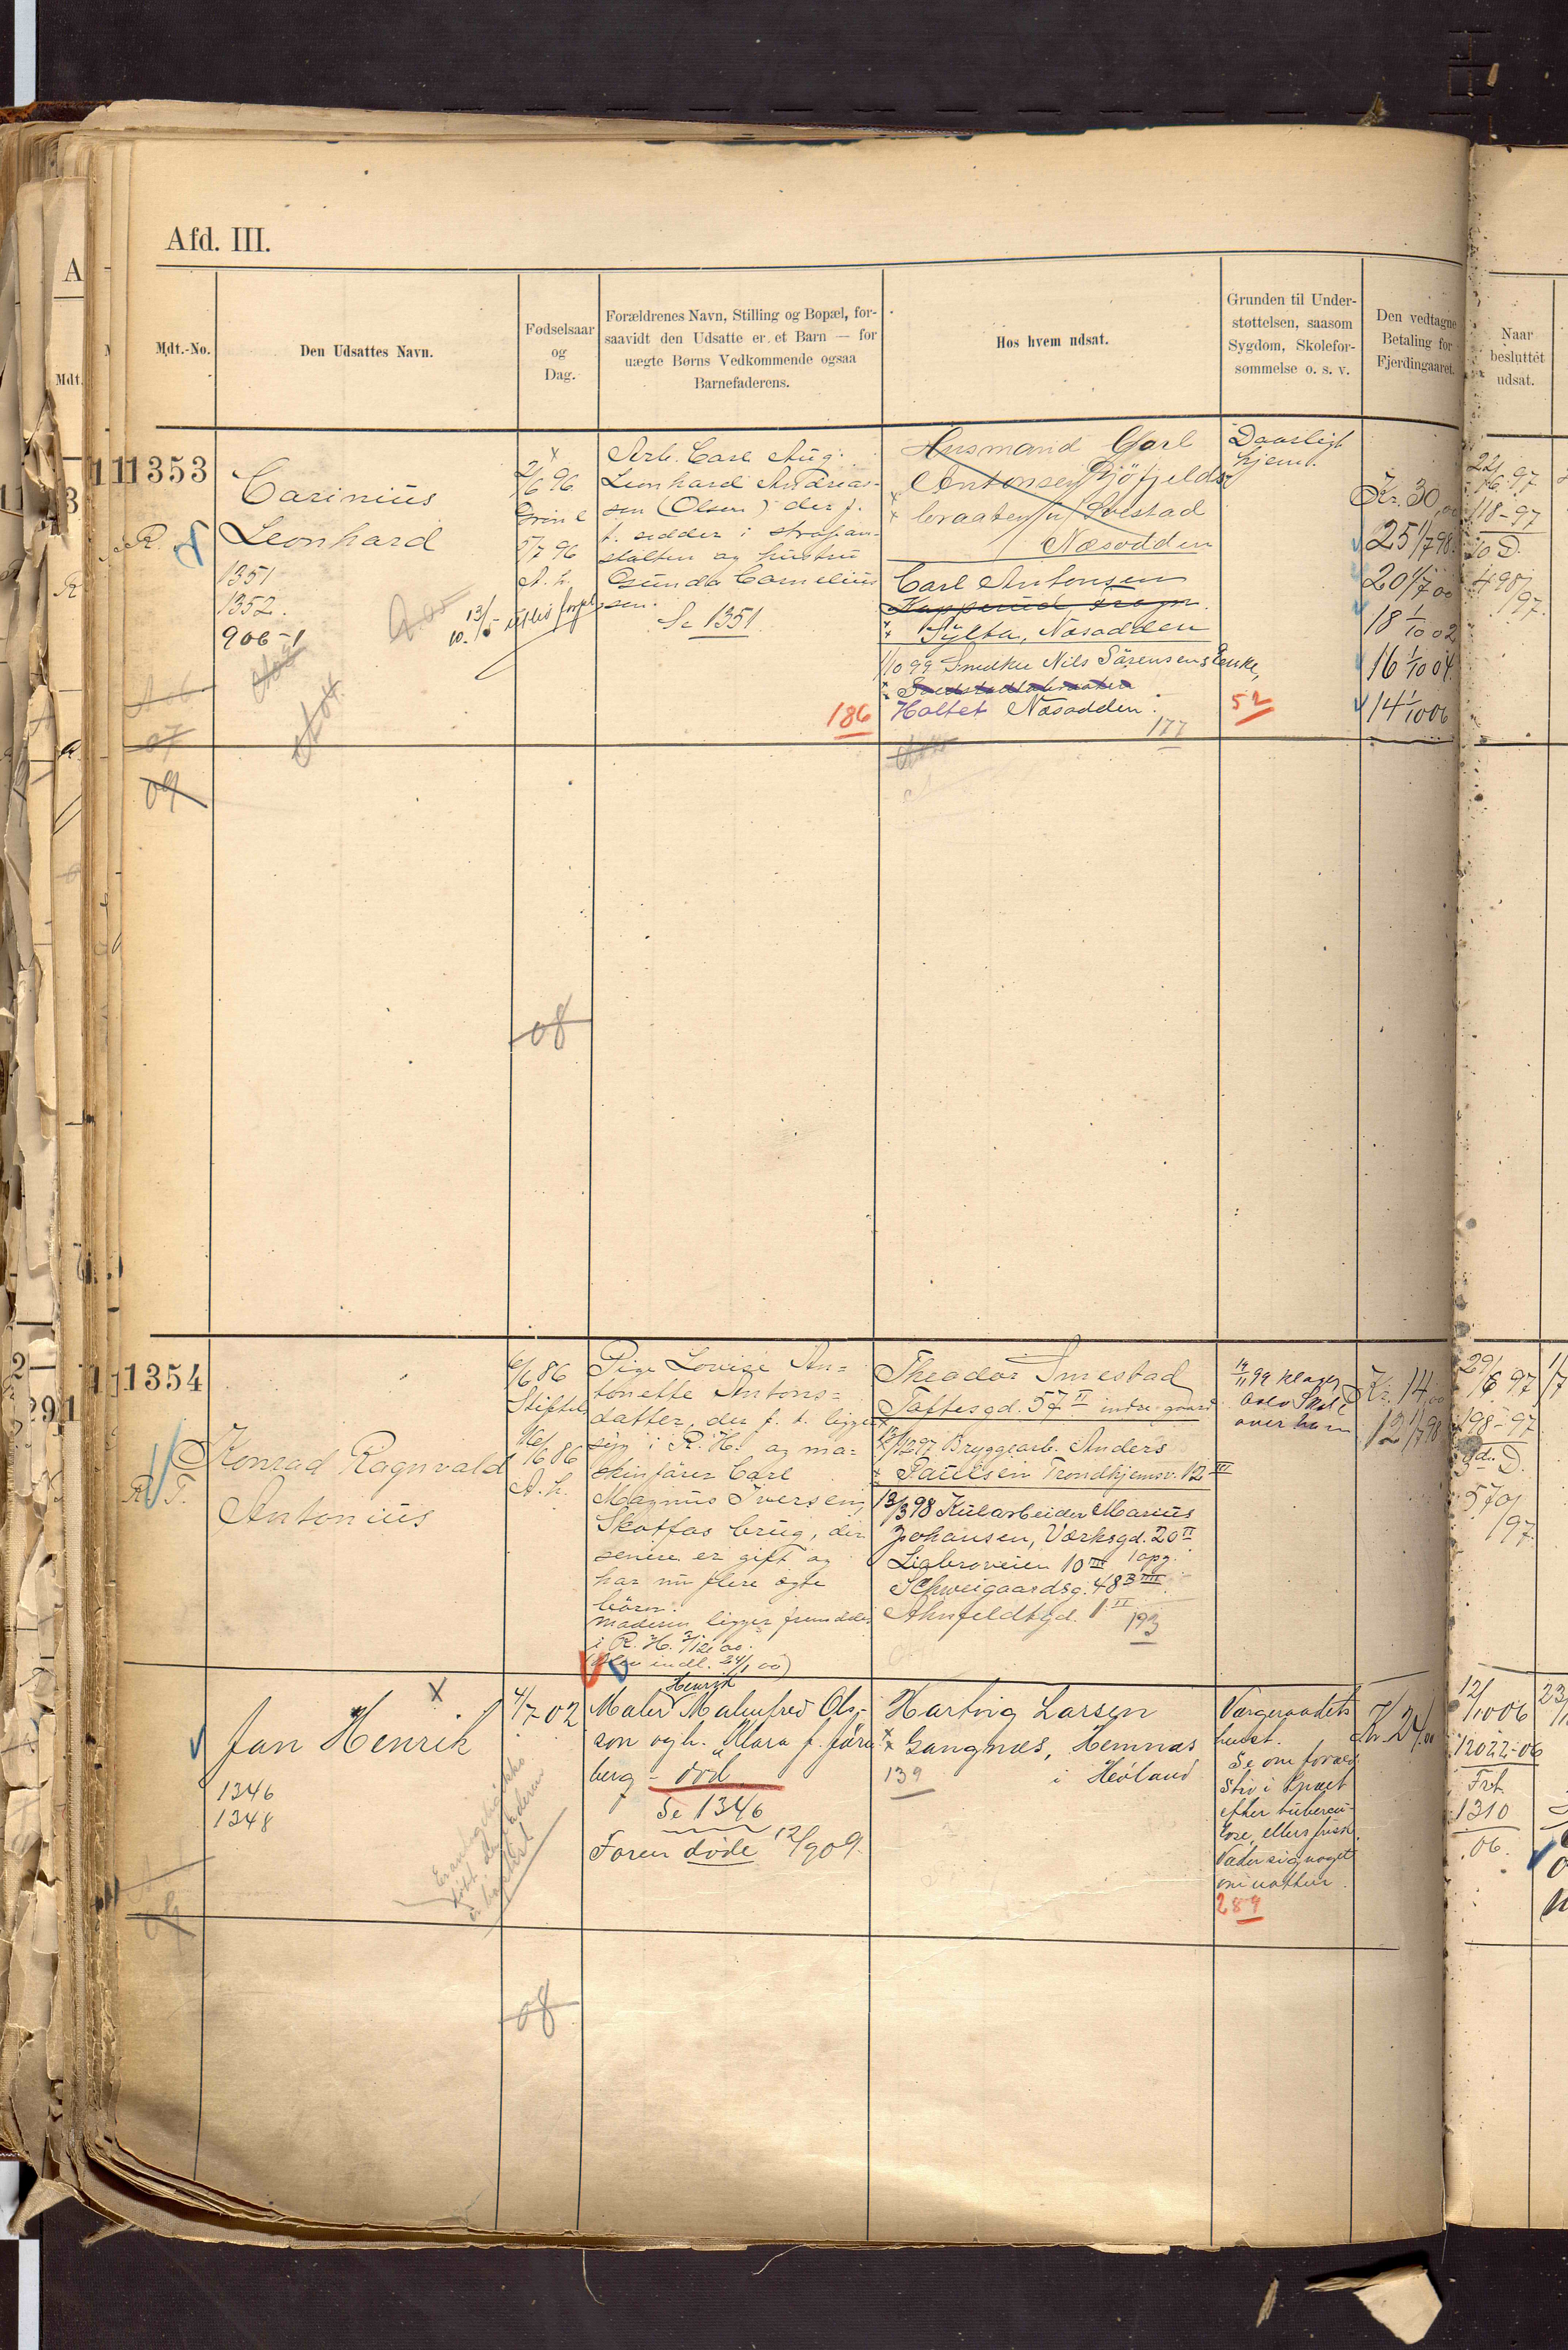 Afd. III.
Mdt.-No.
Den Udsattes Navn.
Fødselsaar
og
Dag.
Forældrenes Navn, Stilling og Bopæl, for-
saavidt den Udsatte er et Barn — for
uægte Børns Vedkommende ogsaa
Barnefaderens.
Hos hvem udsat.
Grunden til Under-
støttelsen, saasom
Sygdom, Skolefor-
sømmelse o. s. v.
Den vedtagne
Betaling for
Fjerdingaaret.
Naar
besluttet
udsat.
1353
R.
Carinius
Leonhard
1351
1352.
906-1
07
09
2/6 96
5/7 96
A. h.
Arb. Carl Aug.
Leonhard Andreas-
sen (Olsen) der f.
t. sidder i strafan-
stalten og hustru
Gunda Cornelius
sen.
Se 1351
186
Husmand Carl
Antonsen
braaten u/ Svestad
Næsodden
Carl Antonsen
Sylta, Næsodden
1/10 99 Smedke Nils Sørensens Enke,
Holtet Næsodden.
177
Daarligt
hjem.
52
Kr. 30,00
25 1/7 98.
20 1/7 00
18 1/10 02
16 1/10 04.
14 1/10 06
22/6 97
118-97
10 D.
498/
97.
08
1354
R. T.
Konrad Ragnvald
Antonius
6/6 86
Stiftels
16/6 86
A. h.
Pige Lovise An-
tonette Antons-
datter, der f. t. ligger
syg i R. H. og ma-
skinfører Carl
Magnus Iversen,
Skotfos brug, der
senere er gift og
har nu flere ægte
børn.
moderen ligger fremdeles
i R. H. 3/12 00.
(blev indl. 24/1 00)
Theodor Smestad
Toftesgd. 57 II indre gaard
1297 Bryggearb. Anders
Paulsen Trondhjemsv. 12 III
13/3 98 Kularbeider Marius
Johansen, Værksgd. 20 II
Ligbroveien 10 III 1 opg.
Schweigaardsg. 48 B III
Ahnfeldtgd. 1 II
193
14/11 99 klager
Oslo Skole
over ham
Kr. 14,00
12 1/7 98
29/6 97
198-97
9de D.
570/
97.
Jan Henrik
1346
1348
4/7 02
Henrik
Maler Malmfred Ols-
son og h. Klara f. Før
berg - død
Se 1346
Faren døde 12/9 09.
Hartvig Larsen
Gangnæs, Hemnæs
i Høland
139
Værgeraadets
beslt.
Se om foræld
Stiv i Knæet
efter tubercu-
lose, ellers frisk.
Væder sig noget
om natten.
289
Kr. 24,00
12/10 06
12022-06
Frt.
1310
06.
08